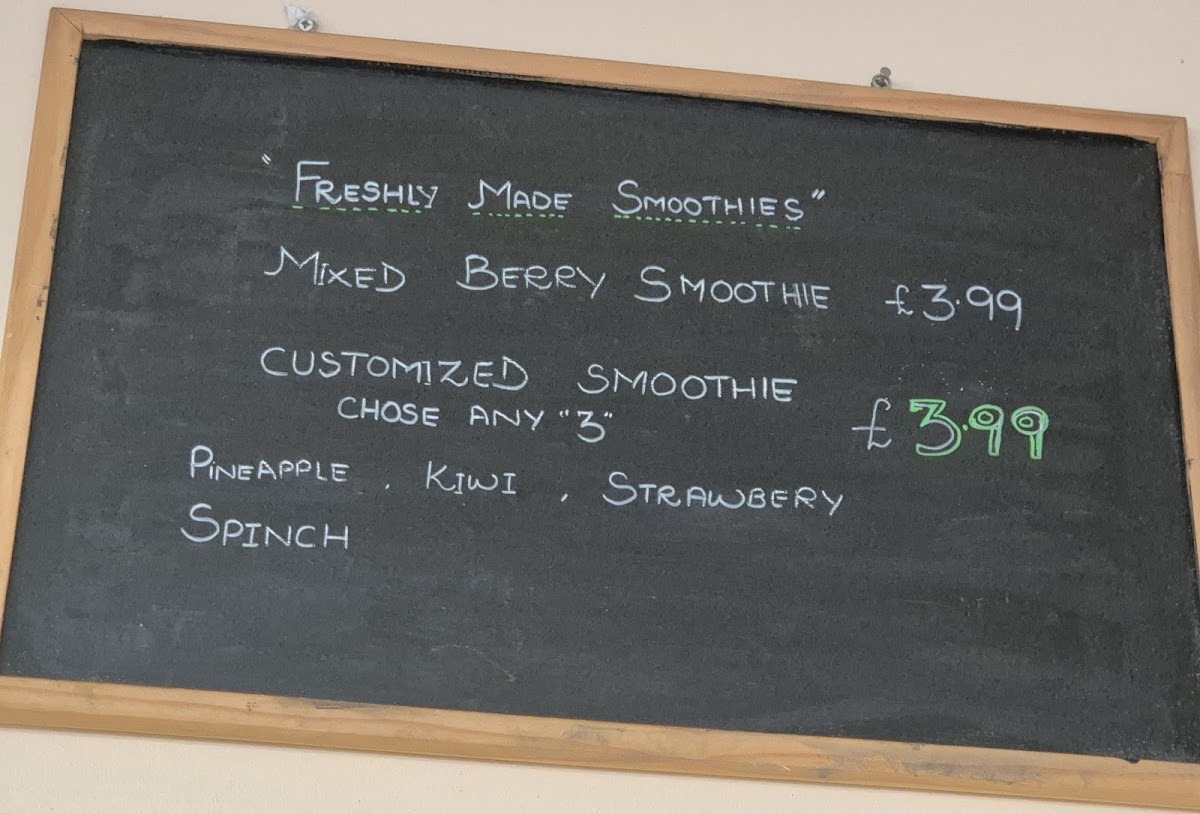 "FRESHLY MADE SMOOTHIES"
MIXED BERRY SMOOTHIE £3.99
CUSTOMIZED SMOOTHIE
CHOSE ANY "3" £3.99
PINEAPPLE , KIWI , STRAWBERY
SPINCH